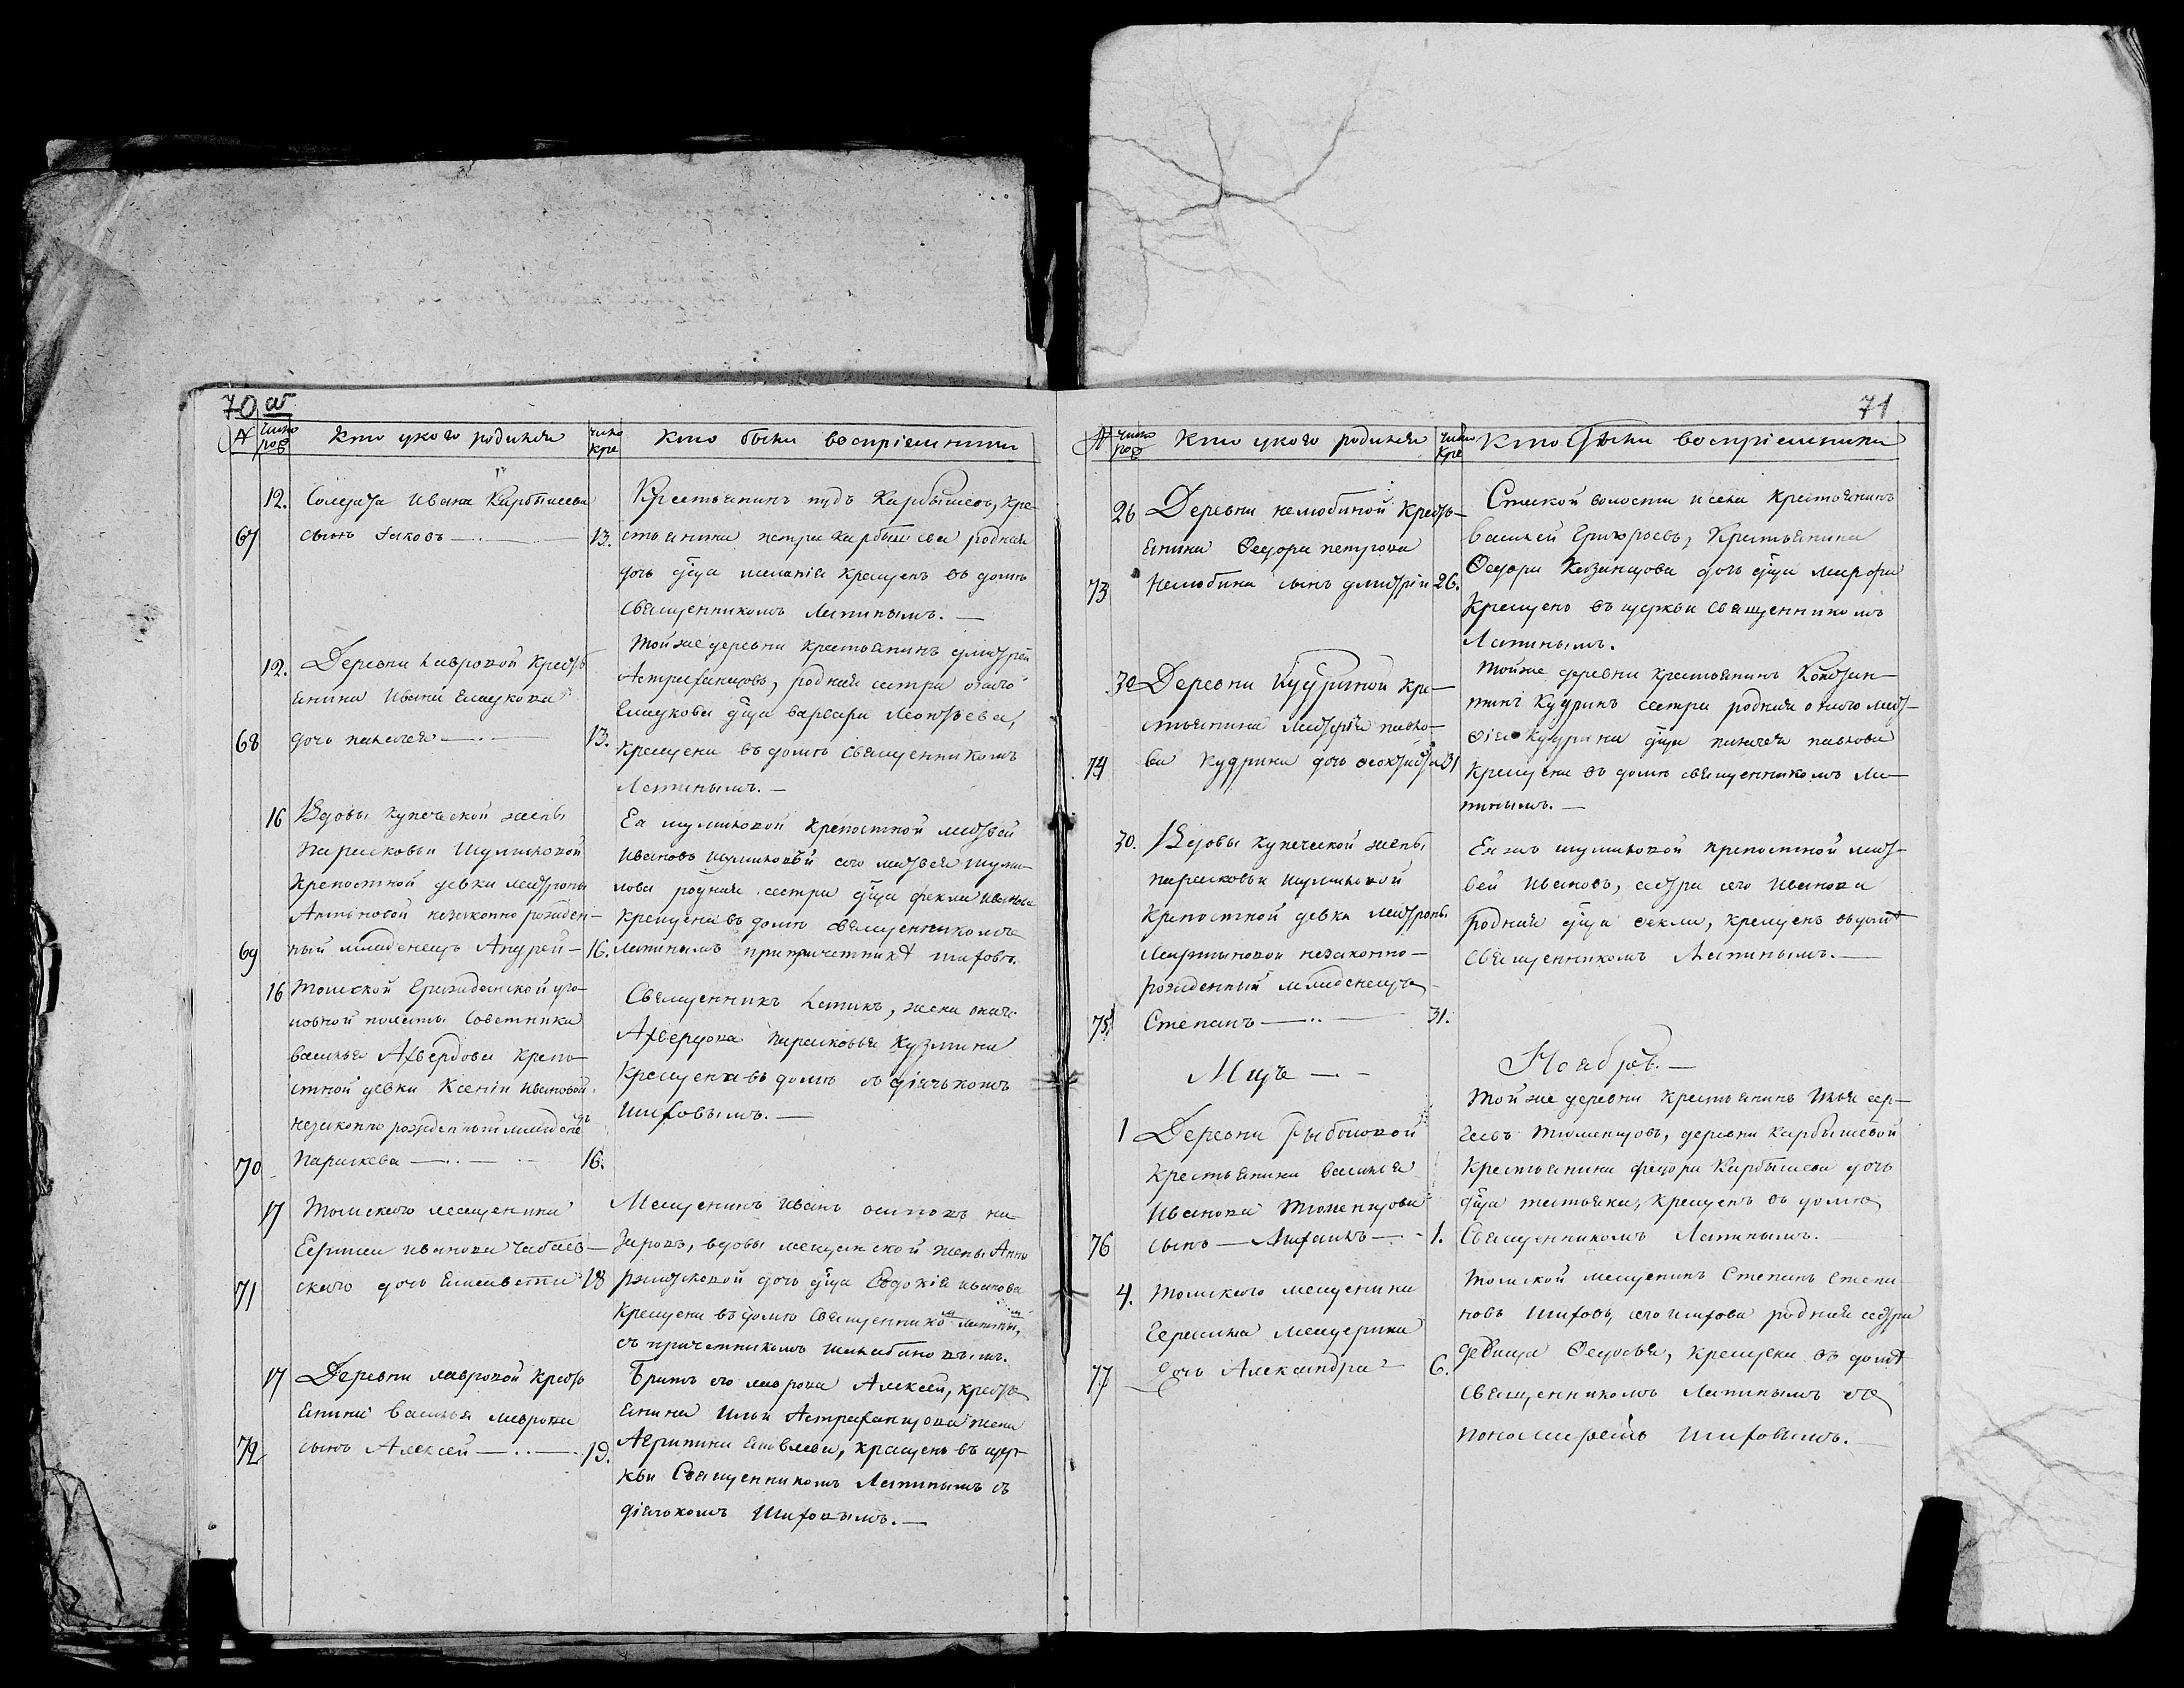 70 об
№ число рож кто у кого родился число кре кто были восприемники
12. Солдата Ивана Карбышева
67 сынъ Яковъ — 13.
Крестьянинъ нудъ Карбышевъ, кре-
стьянина петра Карбышева родная
дочь дѣца меланія крещенъ въ домѣ
священникомъ Лапинымъ. —
12. Деревни Лавровой крестъ
янина Ивана Елаукова
68 дочь пелагея — 13.
Той же деревни крестьянинъ дмитрей
Астраханцовъ, родная сестра онаго
Елаукова дѣца варвара Леонтьева,
крещена въ домѣ священникомъ
Лапинымъ. —
16 Вдовы купеческой жены
парасковьи Шумиловой
крепостной девки матроны
незаконно рожден-
69 ный младенецъ Андрей — 16.
Ея шумиловой крепостной матвей
Ивановъ шумиловой сего матвея шуми-
лова родная сестра дѣца фекла Иванова
крещенъ въ домѣ священникомъ
Лапинымъ при причетникѣ шиховѣ.
16 Томской Гражданской уго-
ловной палаты Советника
василья Ахвердова крепо-
стной девки Ксеніи Ивановой
незаконно рожденный младенецъ
70 Параскева — 16.
Священникъ Лапинъ, жена онаго
Ахвердова парасковья Кузмина
крещена въ домѣ съ діячькомъ
Шиховымъ. —
17 Томскаго мещанина
Герасима Иванова Чабаев-
71 скаго дочь Елисавета 18
Мещанинъ Иванъ осиповъ на-
заровъ, вдовы мещанской жены Анны
дочь дѣца Евдокія Иванова
крещена въ домѣ священникомъ Лапинымъ,
съ причетникомъ
17 Деревни лавровой крестъ
янина василья лаврова
72 сынъ Алексей — 19.
Братъ его лаврова Алексей, кресть
янина Ильи Астраханцова жена
Агрипина Яковлева, крещенъ въ цер-
кви Священникомъ Лапинымъ съ
діячкомъ Шиховымъ. —
71
№ число рож кто у кого родился число кре Кто были восприемники
26 Деревни нелюбиной кресть-
янина Федора петрова
73 Нелюбина сынъ дмитрій 26.
Спаской волости и села крестьянинъ
василей Григорьевъ, крестьянина
Федора Казанцова дочь дѣца марфа
крещенъ въ церкви священникомъ
Лапинымъ.
30 Деревни Кудриной кре-
стьянина Матфія павло-
74 ва Кудрина дочь феоктиста 31
Той же деревни крестьянинъ Констан-
тинъ Кудринъ сестра родная онаго мат-
фія Кудрина дѣца пелагея павлова
крещена въ домѣ священникомъ Ла-
пинымъ. —
30. Вдовы купеческой жены
парасковьи Шумиловой
крепостной девки матроны
Мартыновой незаконно-
рожденный младенецъ
75 Степанъ — 31.
Ея жъ шумиловой крепостной мат-
вей Ивановъ, сестра его Иванова
родная дѣца фекла, крещенъ въ домѣ
священникомъ Лапинымъ. —
Мцъ — Ноябрь. —
1 Деревни Рыбаловой
крестьянина василья
Иванова Тюменцова
76 сынъ — Михаилъ — 1.
Той же деревни крестьянинъ Илья сер-
геевъ Тюменцовъ, деревни Карбышевой
крестьянина федора Карбышева дочь
дѣца татьяна, крещенъ въ домѣ
Священникомъ Лапинымъ. —
4. Томскаго мещанина
Герасима мещерина
77 дочь Александра 6.
Томской мещанинъ Степанъ степа-
новъ Шиховъ, его шихова родная сестра
девица Федосья, крещена въ домѣ
священникомъ Лапинымъ съ
понамаремъ Шиховымъ. —